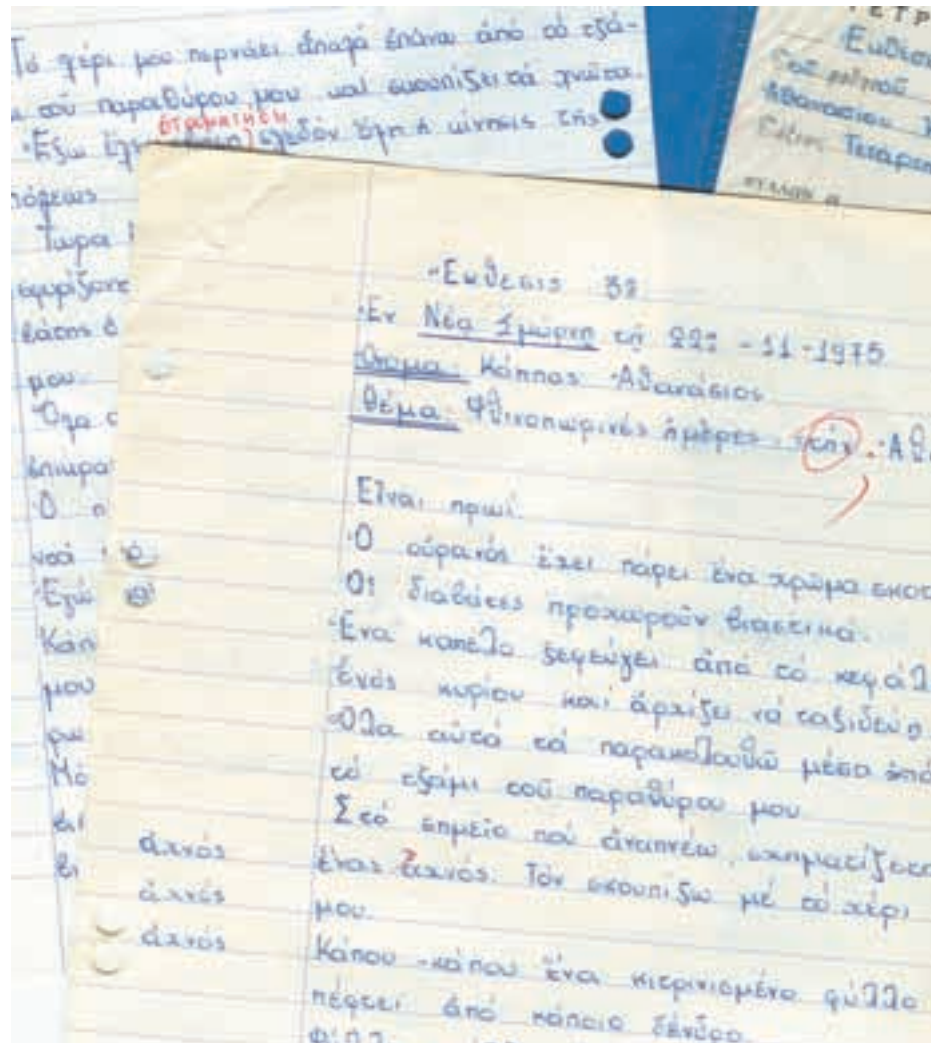 Τό χέρι μου περνάει ἁπαλά ἐπάνω ἀπό τό τζά-
τοῦ παραθύρου μου καί σκουπίζει τά χνῶτα.
σταμάτησε
Ἔξω ἔχει σχεδόν ὅλη ἡ κίνησις τῆς
πόλεως
Τώρα
μου
Ὅλα
Ὁ
Ἐγώ
Κάπ
μου
Μό
ΤΕΤΡ
Ἐκθέσε
τοῦ μαθητοῦ
Ἀθανασίου
Τάξις Τετάρτη
ΦΥΛΛΩΝ
Ἔκθεσις 3η
Ἐν Νέᾳ Σμύρνῃ τῇ 22α -11-1975
Ὄνομα: Κάππος Ἀθανάσιος
Θέμα: Φθινοπωρινές ἡμέρες στήν Ἀθ
Εἶναι πρωί.
Ὁ οὐρανός ἔχει πάρει ἕνα χρῶμα σκοτ
Οἱ διαβάτες προχωροῦν βιαστικά.
Ἕνα καπέλο ξεφεύγει ἀπό τό κεφάλ
ἑνός κυρίου καί ἀρχίζει νά ταξιδεύῃ.
Ὅλα αὐτά τά παρακολουθῶ μέσα ἀπό
τό τζάμι τοῦ παραθύρου μου
Στό σημεῖο πού ἀναπνέω, σχηματίζετα
ἀχνός
ἕνας ἀχνός. Τόν σκουπίζω μέ τό χέρι
ἀχνός
μου.
ἀχνός
Κάπου-κάπου ἕνα κιτρινισμένο φύλλο
πέφτει ἀπό κάποιο δένδρο.